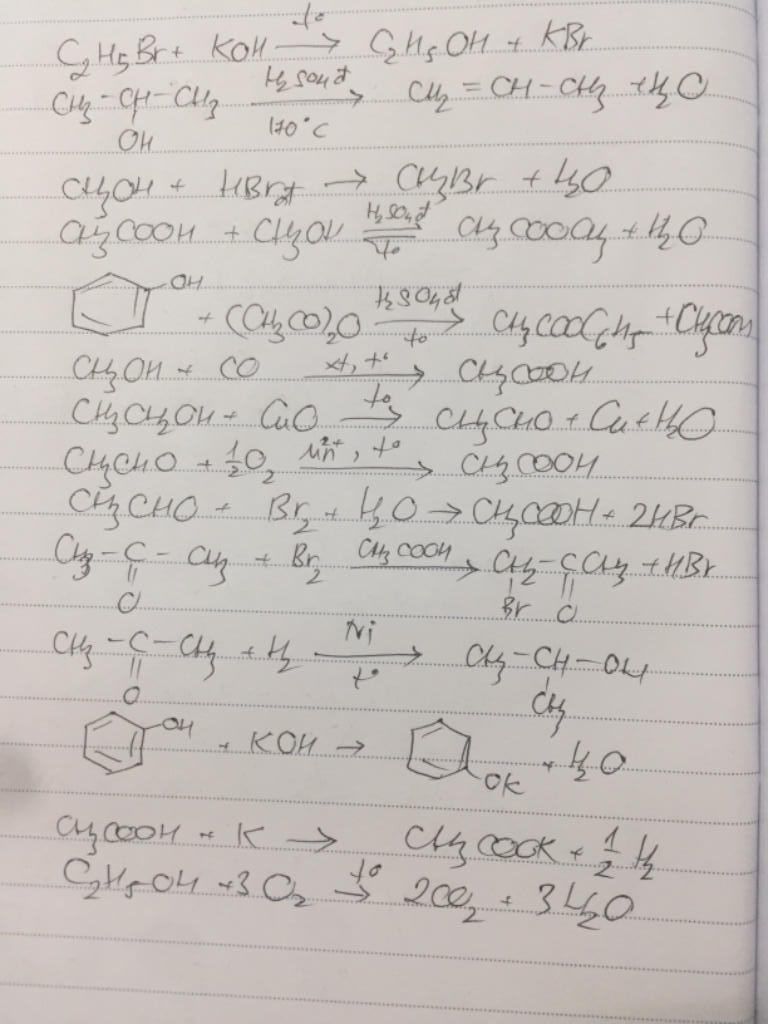 C₂H₅Br + KOH —t°→ C₂H₅OH + KBr
CH₃–CH(OH)–CH₃ —H₂SO₄đ, 170°C→ CH₂=CH–CH₃ + H₂O
CH₃OH + HBr → CH₃Br + H₂O
CH₃COOH + CH₃OH ⇌ (H₂SO₄đ, t°) CH₃COOCH₃ + H₂O
OH + (CH₃CO)₂O —H₂SO₄đ, t°→ CH₃COOC₆H₅ + CH₃COOH
CH₃OH + CO —xt, t°→ CH₃COOH
CH₃CH₂OH + CuO —t°→ CH₃CHO + Cu + H₂O
CH₃CHO + ½O₂ —Mn²⁺, t°→ CH₃COOH
CH₃CHO + Br₂ + H₂O → CH₃COOH + 2HBr
CH₃–C(=O)–CH₃ + Br₂ —CH₃COOH→ CH₂(Br)–C(=O)CH₃ + HBr
CH₃–C(=O)–CH₃ + H₂ —Ni, t°→ CH₃–CH(CH₃)–OH
OH + KOH → OK + H₂O
CH₃COOH + K → CH₃COOK + ½H₂
C₂H₅OH + 3O₂ —t°→ 2CO₂ + 3H₂O